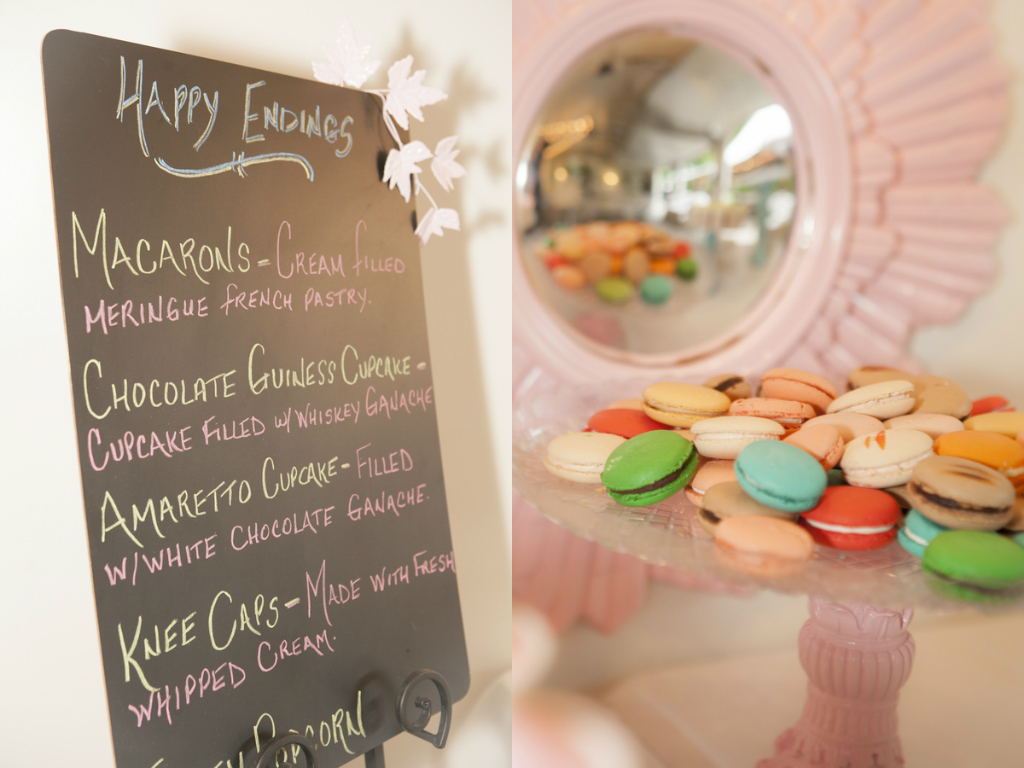 Happy Endings
Macarons - Cream filled
meringue french pastry.
Chocolate Guiness Cupcake -
Cupcake filled w/ Whiskey Ganache
Amaretto Cupcake - Filled
w/ White Chocolate Ganache.
Knee Caps - Made with Fresh
Whipped Cream.